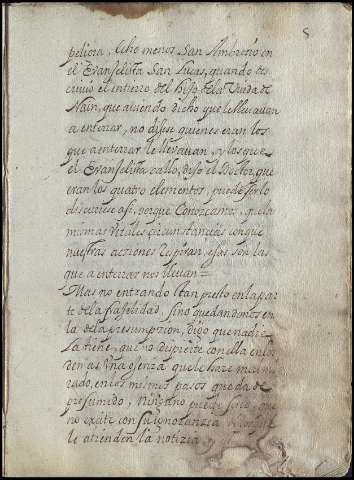 8
peliora, echo menos San Ambrosio en
el Evangelista San Lucas, quando des
crivió el entierro del hijo dela Viuda de
Nain, que aviendo dicho que le llevavan
a enterrar, no dijese quienes eran los
que a enterrar le llevavan, y los que
el Evangelista calló, dijo el Doctor, que
eran los quatro elementos, puedese lo
discurriese asi, porque Conozcamos, que las
mismas Vitales circunstancias con que
nuestras acciones respiran, esas son las
que a enterrar nos llevan=
Mas no entrando tan presto en la par
te dela fragilidad, sino quedandonos en
la dela presumpcion, digo que nadie
la tiene, que no dispierte con ella en los
demas Una ofensa que le haze mal mi
rado, en los mismos pasos que da de
presumido, Ninguno
no exite con su ignorancia
le atienden la noticia